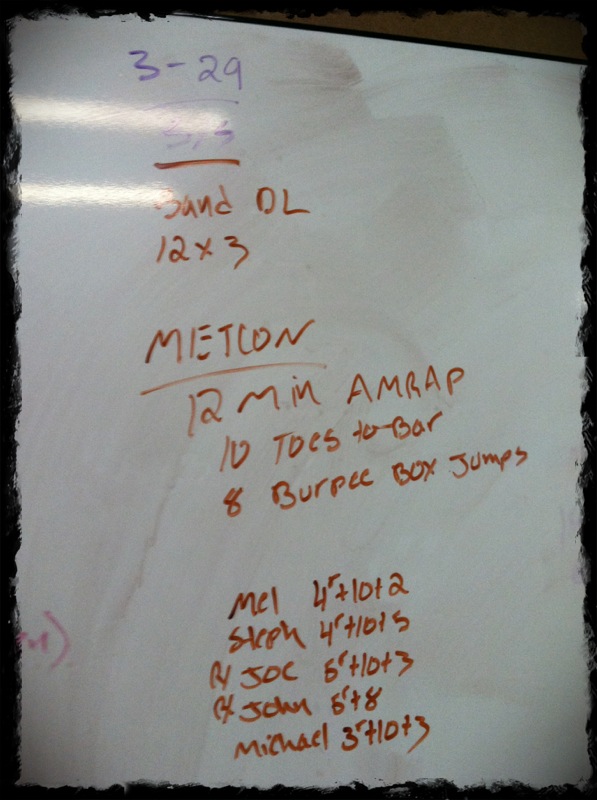 3-29
S/S
Band DL
12 x 3
METCON
12 Min AMRAP
10 Toes-to-Bar
8 Burpee Box Jumps
Mel 4r+10+2
Steph 4r+10+5
Rx Joe 5r+10+3
Rx John 5r+8
Michael 3r+10+3